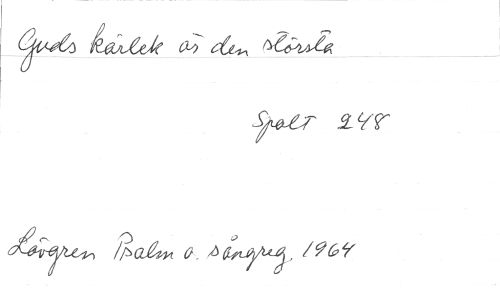 Guds kärlek är den största
Spalt 248
Lövgren Psalm o. sångreg. 1964